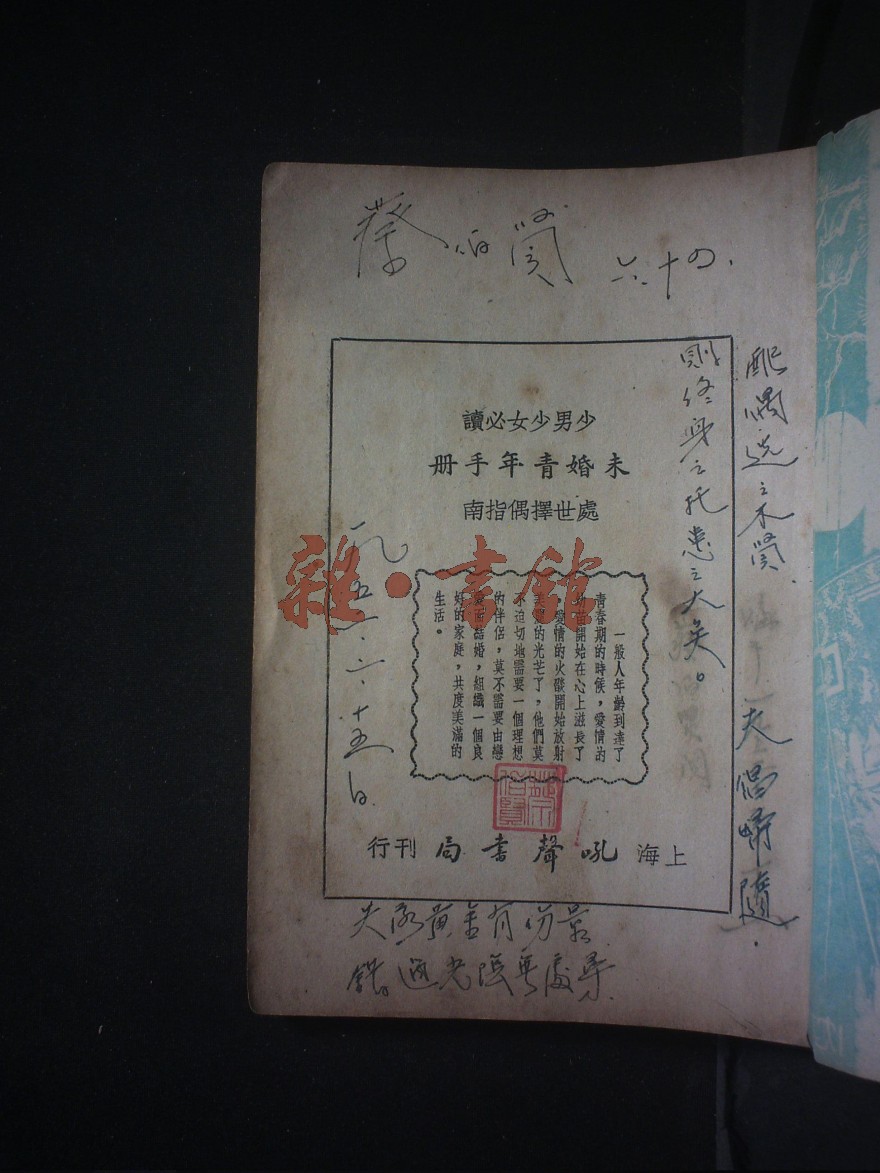 蔡伯賢 六十四
少男少女必讀
未婚青年手册
處世擇偶指南
一般人年齡到達了
青春期的時候，愛情的
幼苗開始在心上滋長了
，愛情的火礮開始放射
美麗的光芒了，他們莫
不迫切地需要一個理想
的伴侶，莫不需要由戀
愛而結婚，組織一個良
好的家庭，共度美滿的
生活。
上海吼聲書局刊行
配偶選之不賢
則終身之托患之大矣。
夫倡婦隨
一九五一.六.十五日
失落黃金有份尋
錯過光陰無處尋
蔡伯賢
雜·書館